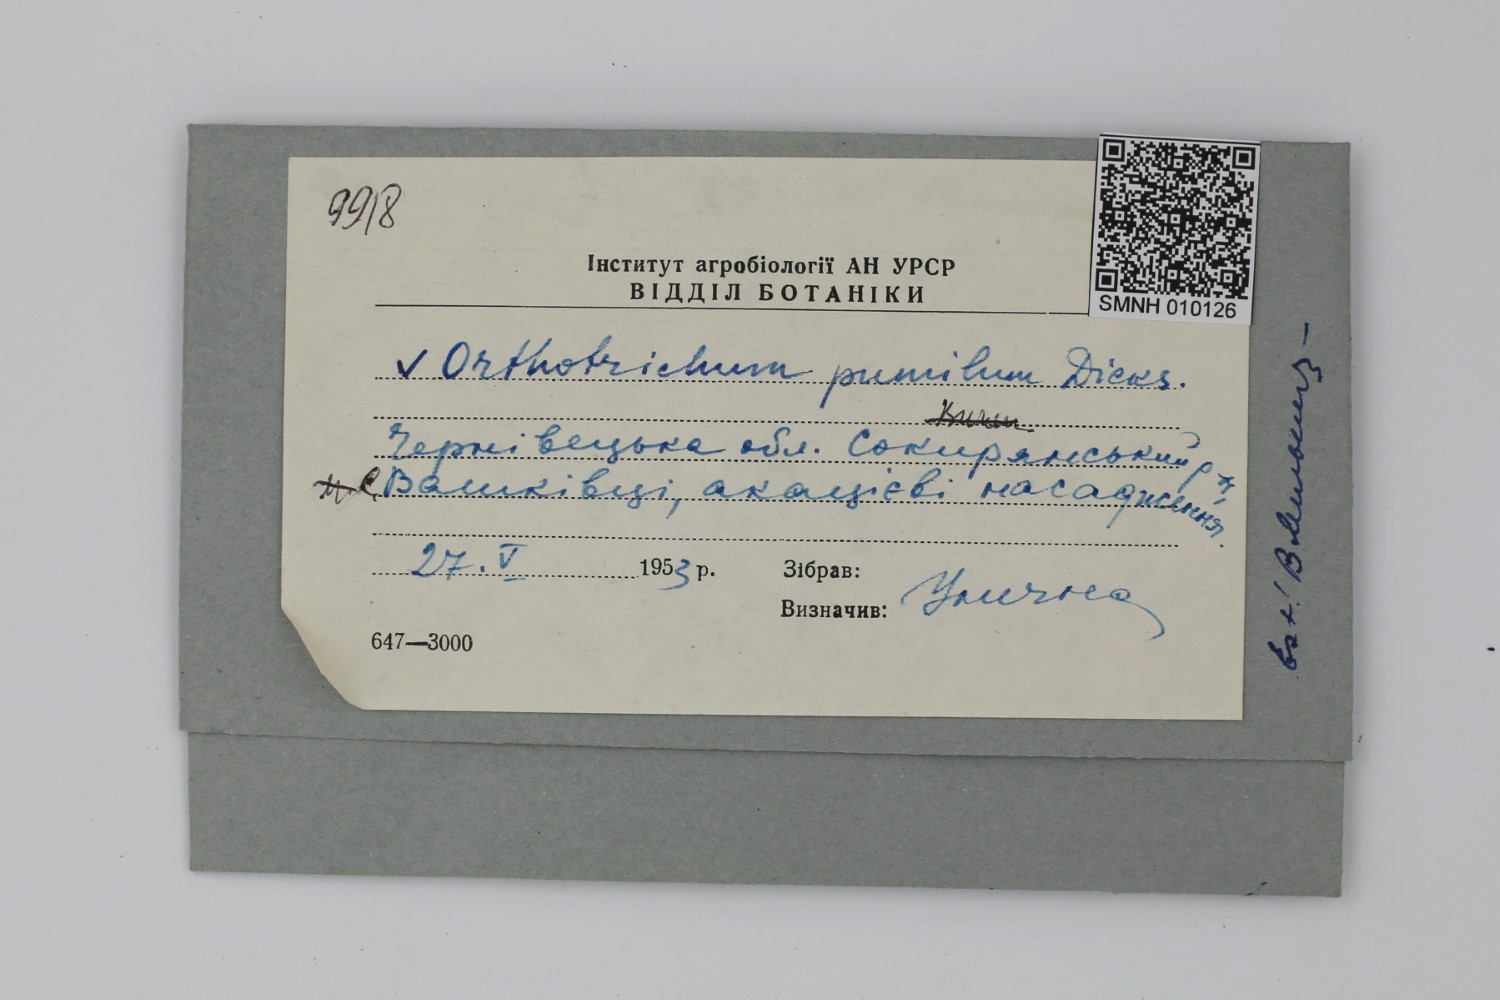 9918
Інститут агробіології АН УРСР
ВІДДІЛ БОТАНІКИ
SMNH 010126
✓ Orthotrichum pumilum Dicks.
Чернівецька обл. Сокирянський р-н,
с. Вашківці, акацієві насадження.
27. V 1953 р.
Зібрав:
Визначив: Уличка
647—3000